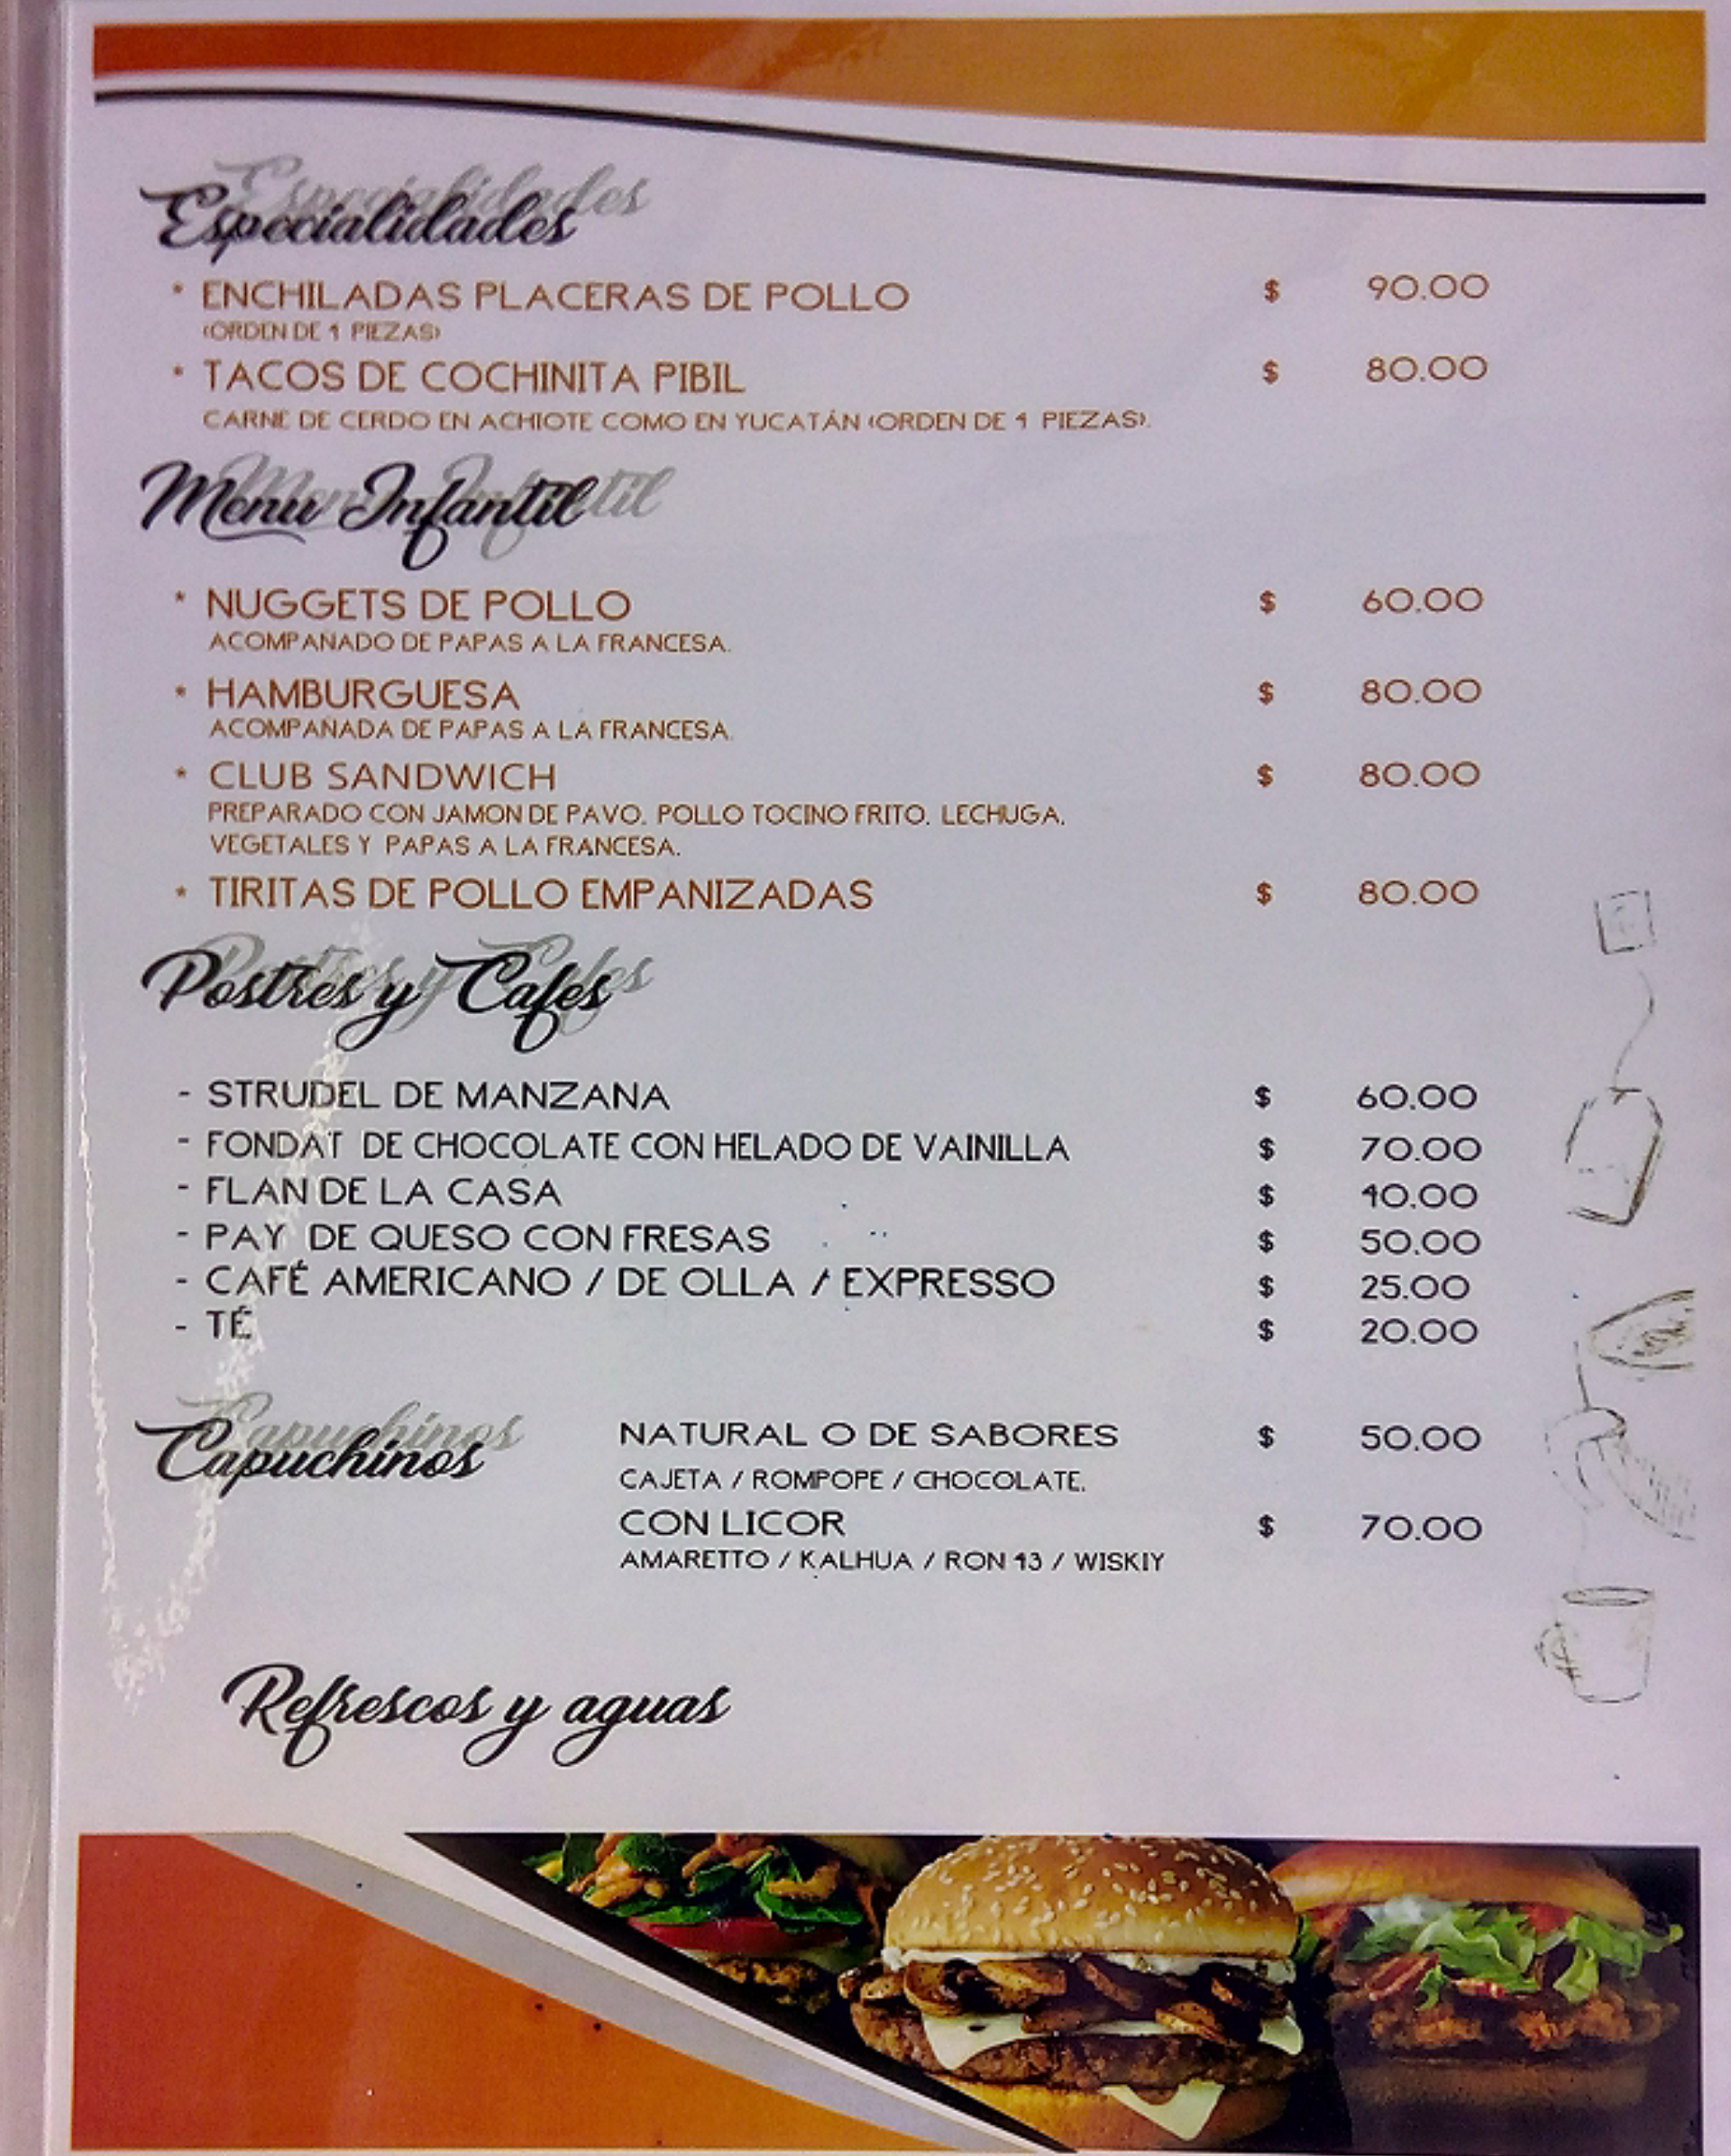 Especialidades
* ENCHILADAS PLACERAS DE POLLO $ 90.00
(ORDEN DE 4 PIEZAS)
* TACOS DE COCHINITA PIBIL $ 80.00
CARNE DE CERDO EN ACHIOTE COMO EN YUCATÁN (ORDEN DE 4 PIEZAS).
Menu Infantil
* NUGGETS DE POLLO $ 60.00
ACOMPAÑADO DE PAPAS A LA FRANCESA.
* HAMBURGUESA $ 80.00
ACOMPAÑADA DE PAPAS A LA FRANCESA.
* CLUB SANDWICH $ 80.00
PREPARADO CON JAMON DE PAVO. POLLO TOCINO FRITO. LECHUGA,
VEGETALES Y PAPAS A LA FRANCESA.
* TIRITAS DE POLLO EMPANIZADAS $ 80.00
Postres y Cafes
- STRUDEL DE MANZANA $ 60.00
- FONDAT DE CHOCOLATE CON HELADO DE VAINILLA $ 70.00
- FLAN DE LA CASA $ 40.00
- PAY DE QUESO CON FRESAS $ 50.00
- CAFÉ AMERICANO / DE OLLA / EXPRESSO $ 25.00
- TÉ $ 20.00
Capuchinos
NATURAL O DE SABORES $ 50.00
CAJETA / ROMPOPE / CHOCOLATE.
CON LICOR $ 70.00
AMARETTO / KALHUA / RON 43 / WISKIY
Refrescos y aguas